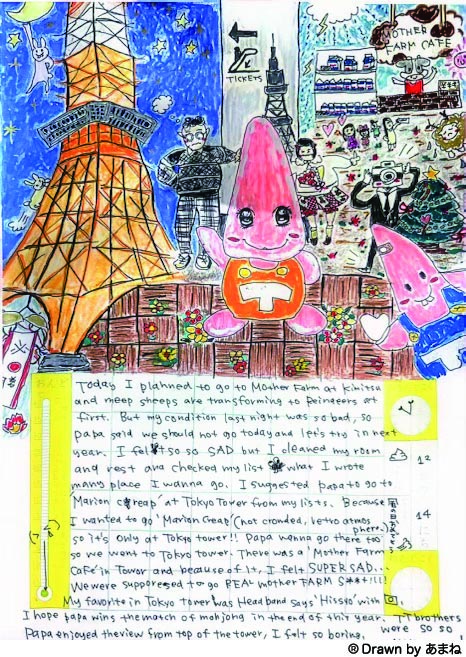 TICKETS
MOTHER FARM CAFE
Today I planned to go to Mother Farm at Kimitsu
and meep sheeps are transforming to Reindeers at
first. But my condition last night was so bad, so
papa said we should not go today and let's try in next
year. I felt so so SAD but I cleaned my room
and rest and checked my list what I wrote
many place I wanna go. I suggested papa to go to
'Marion Creap' at Tokyo Tower from my lists. Because
I wanted to go 'Marion Creap' (not crowded, retro atmos
phere.)
so it's only at Tokyo tower!! Papa wanna go there too
so we went to Tokyo tower. There was a 'Mother Farm
Cafe' in Tower and because of it, I felt SUPER SAD...
We were supporesed to go REAL mother FARM S***!!!!
My favorite in Tokyo tower was Head band says 'Hissyo' with
I hope papa wins the match of mahjong in the end of this year. TT brothers
were so so
Papa enjoyed the view from top of the tower, I felt so boring.
12
14
© Drawn by あまね